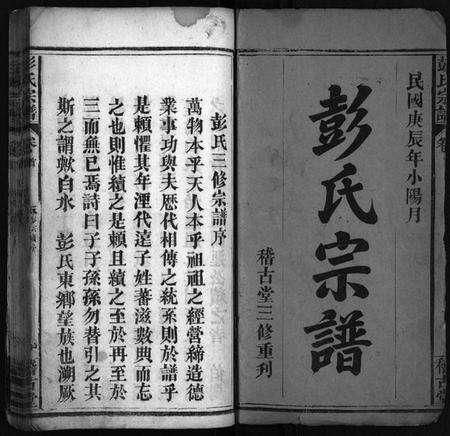 彭氏宗譜
民國庚辰年小陽月
彭氏宗譜
稽古堂三修重刋
稽古堂
彭氏三修宗譜序
萬物本乎天人本乎祖祖之經營締造德
業事功與夫歷代相傳之統系則於譜乎
是賴懼其年湮代遠子姓蕃滋數典而忘
之也則惟續之是賴且續之至於再至於
三而無已焉詩曰子子孫孫勿替引之其
斯之謂歟白水　彭氏東鄉望族也溯厥
彭氏宗譜
卷首
稽古堂